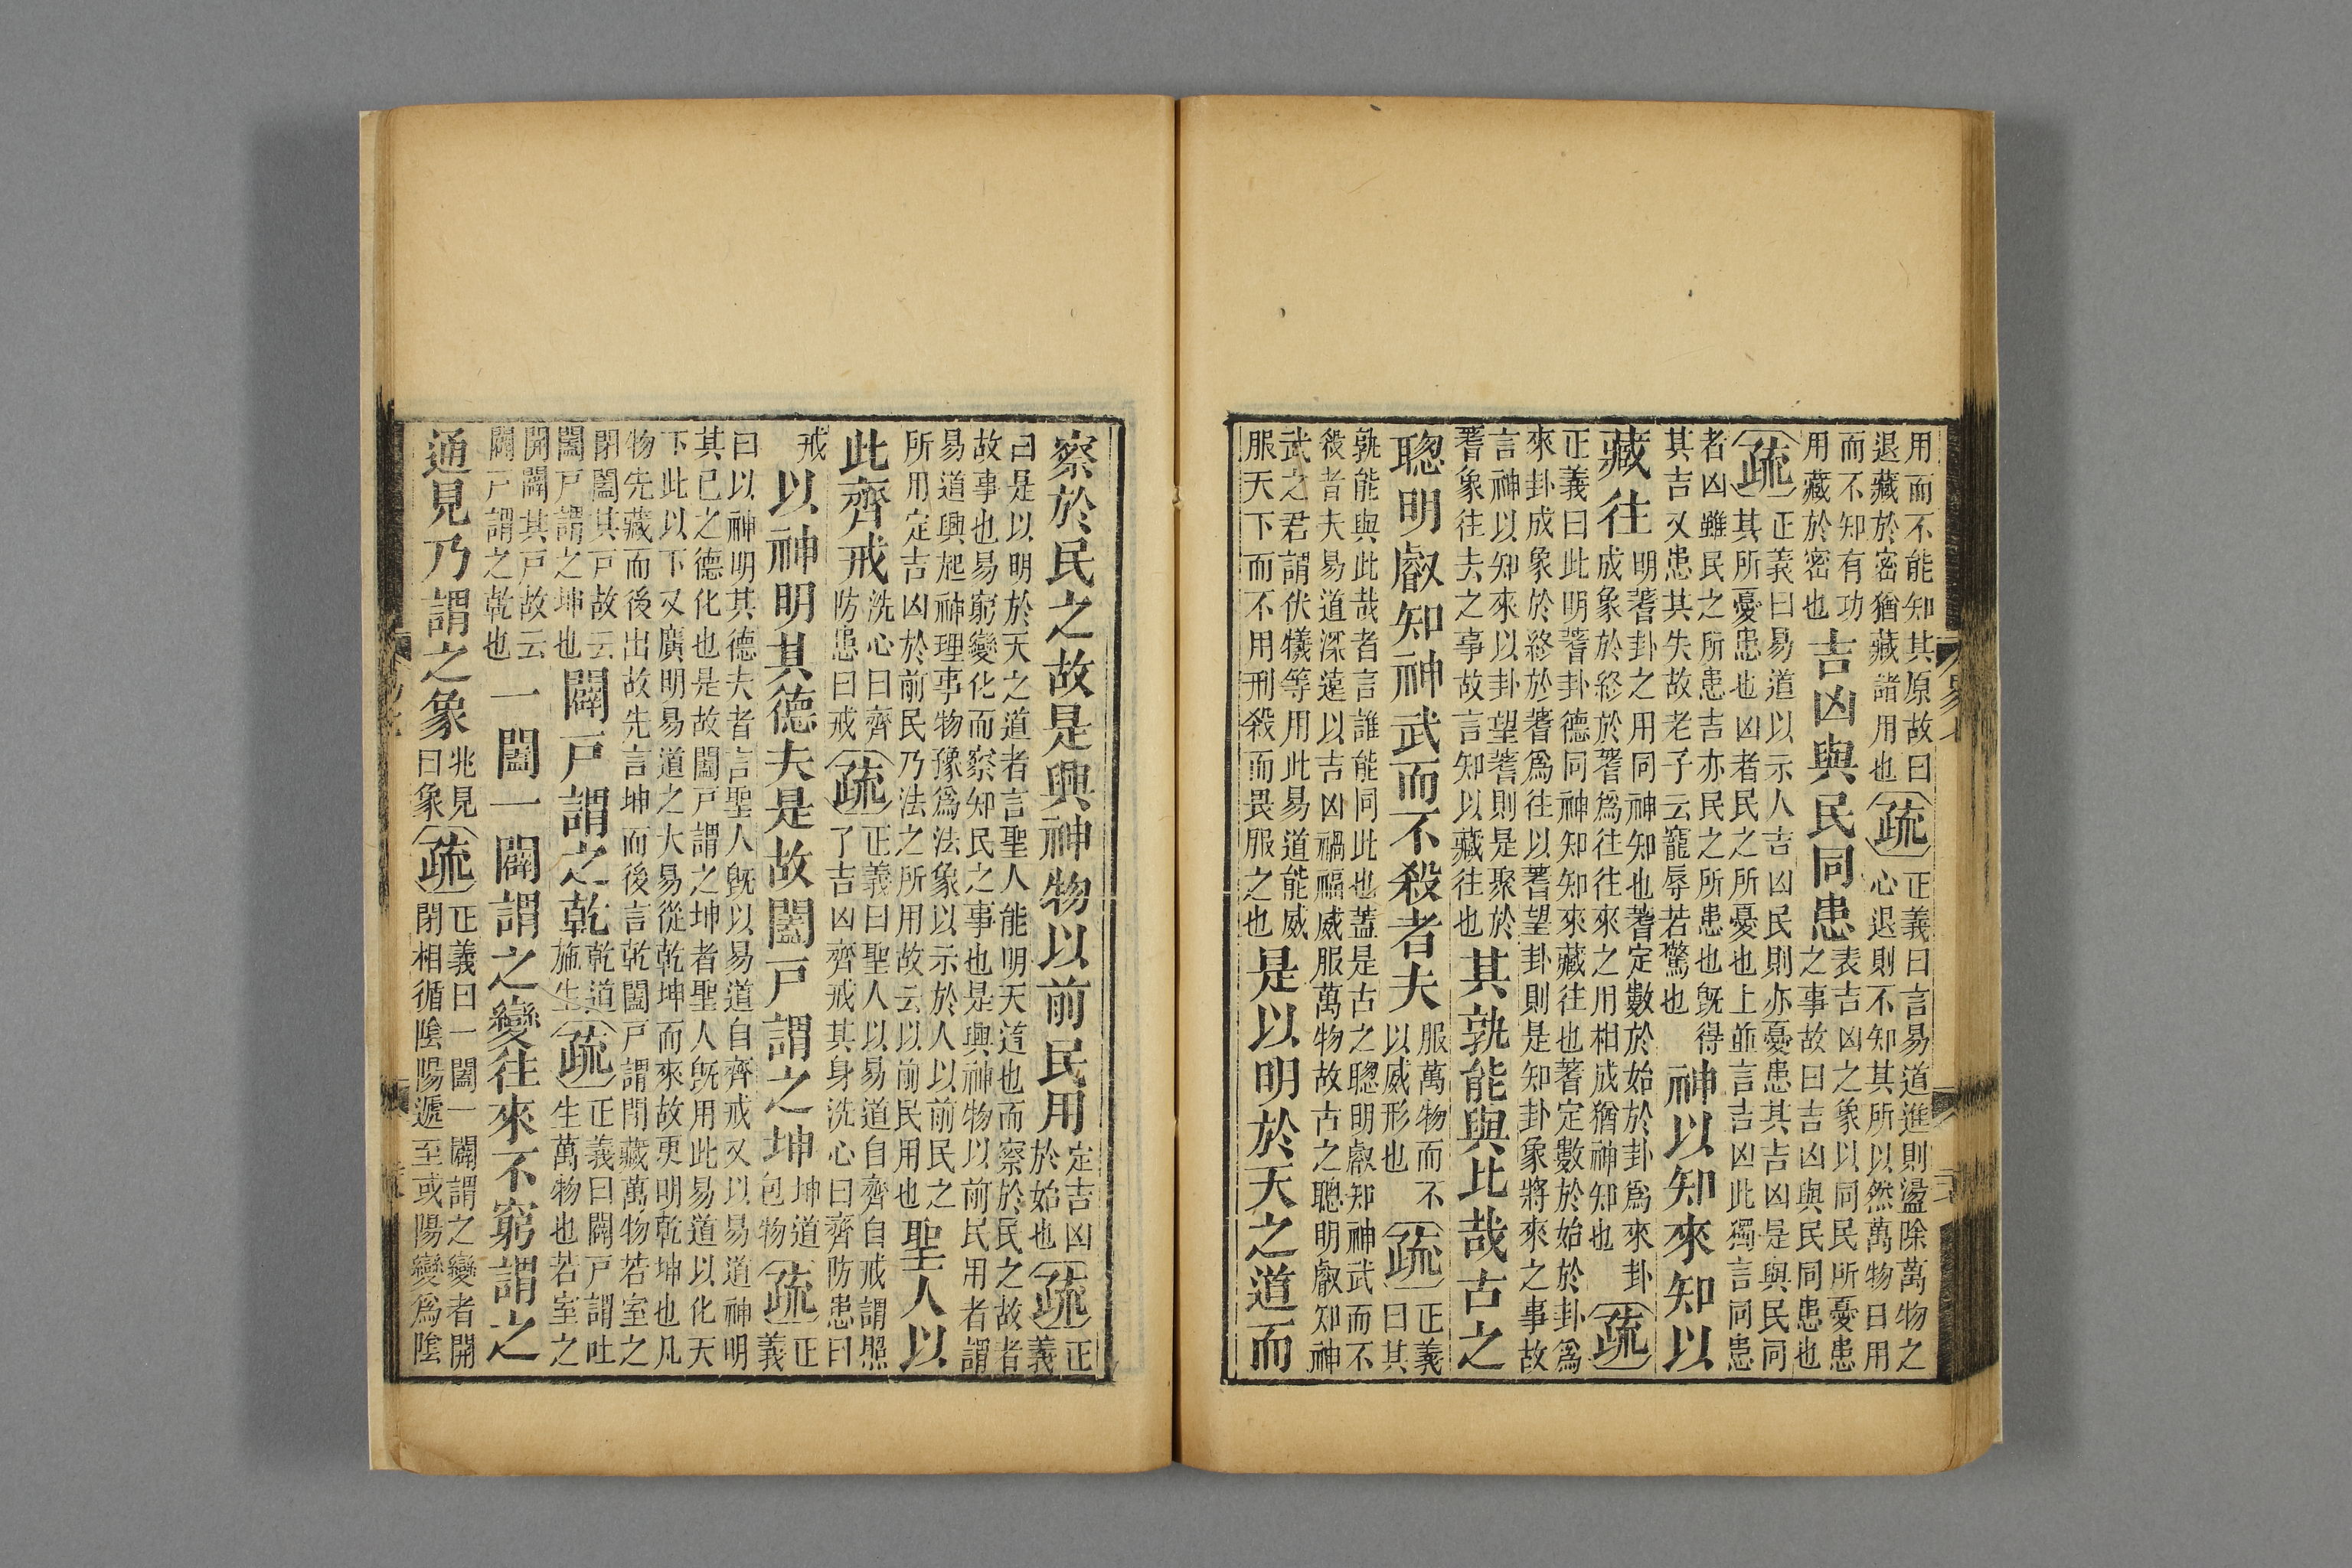 用而不能知其原故曰
退藏於密猶藏諸用也
疏
正義曰言易道進則盪除萬物之
心退則不知其所以然萬物日用
而不知有功
用藏於密也
吉凶與民同患
表吉凶之象以同民所憂患
之事故曰吉凶與民同患也
疏
正義曰易道以示人吉凶民則亦憂患其吉凶是與民同
其所憂患也凶者民之所憂也上並言吉凶此獨言同患
者凶雖民之所患吉亦民之所患也既得
其吉又患其失故老子云寵辱若驚也
神以知來知以
藏往
明蓍卦之用同神知也蓍定數於始於卦爲來卦
成象於終於蓍爲往往來之用相成猶神知也
疏
正義曰此明蓍卦德同神知知來藏往也蓍定數於始於卦爲
來卦成象於終於蓍爲往以蓍望卦則是知卦象將來之事故
言神以知來以卦望蓍則是聚於
蓍象往去之事故言知以藏往也
其孰能與此哉古之
聰明叡知神武而不殺者夫
服萬物而不
以威形也
疏
正義
曰其
孰能與此哉者言誰能同此也蓋是古之聰明叡知神武而不
殺者夫易道深遠以吉凶禍福威服萬物故古之聰明叡知神
武之君謂伏犧等用此易道能威
服天下而不用刑殺而畏服之也
是以明於天之道而
察於民之故是興神物以前民用
定吉凶
於始也
疏
正
義
曰是以明於天之道者言聖人能明天道也而察於民之故者
故事也易窮變化而察知民之事也是興神物以前民用者謂
易道興起神理事物豫爲法象以示於人以前民之
所用定吉凶於前民乃法之所用故云以前民用也
聖人以
此齊戒
洗心曰齊
防患曰戒
疏
正義曰聖人以易道自齊自戒謂照
了吉凶齊戒其身洗心曰齊防患曰
戒
以神明其德夫是故闔戸謂之坤
坤道
包物
疏
正
義
曰以神明其德夫者言聖人既以易道自齊戒又以易道神明
其已之德化也是故闔戸謂之坤者聖人既用此易道以化天
下此以下又廣明易道之大易從乾坤而來故更明乾坤也凡
物先藏而後出故先言坤而後言乾闔戸謂閉藏萬物若室之
閉闔其戸故云
闔戸謂之坤也
闢戸謂之乾
乾道
施生
疏
正義曰闢戸謂吐
生萬物也若室之
開闢其戸故云
闢戸謂之乾也
一闔一闢謂之變往來不窮謂之
通見乃謂之象
兆見
曰象
疏
正義曰一闔一闢謂之變者開
閉相循陰陽遞至或陽變爲陰